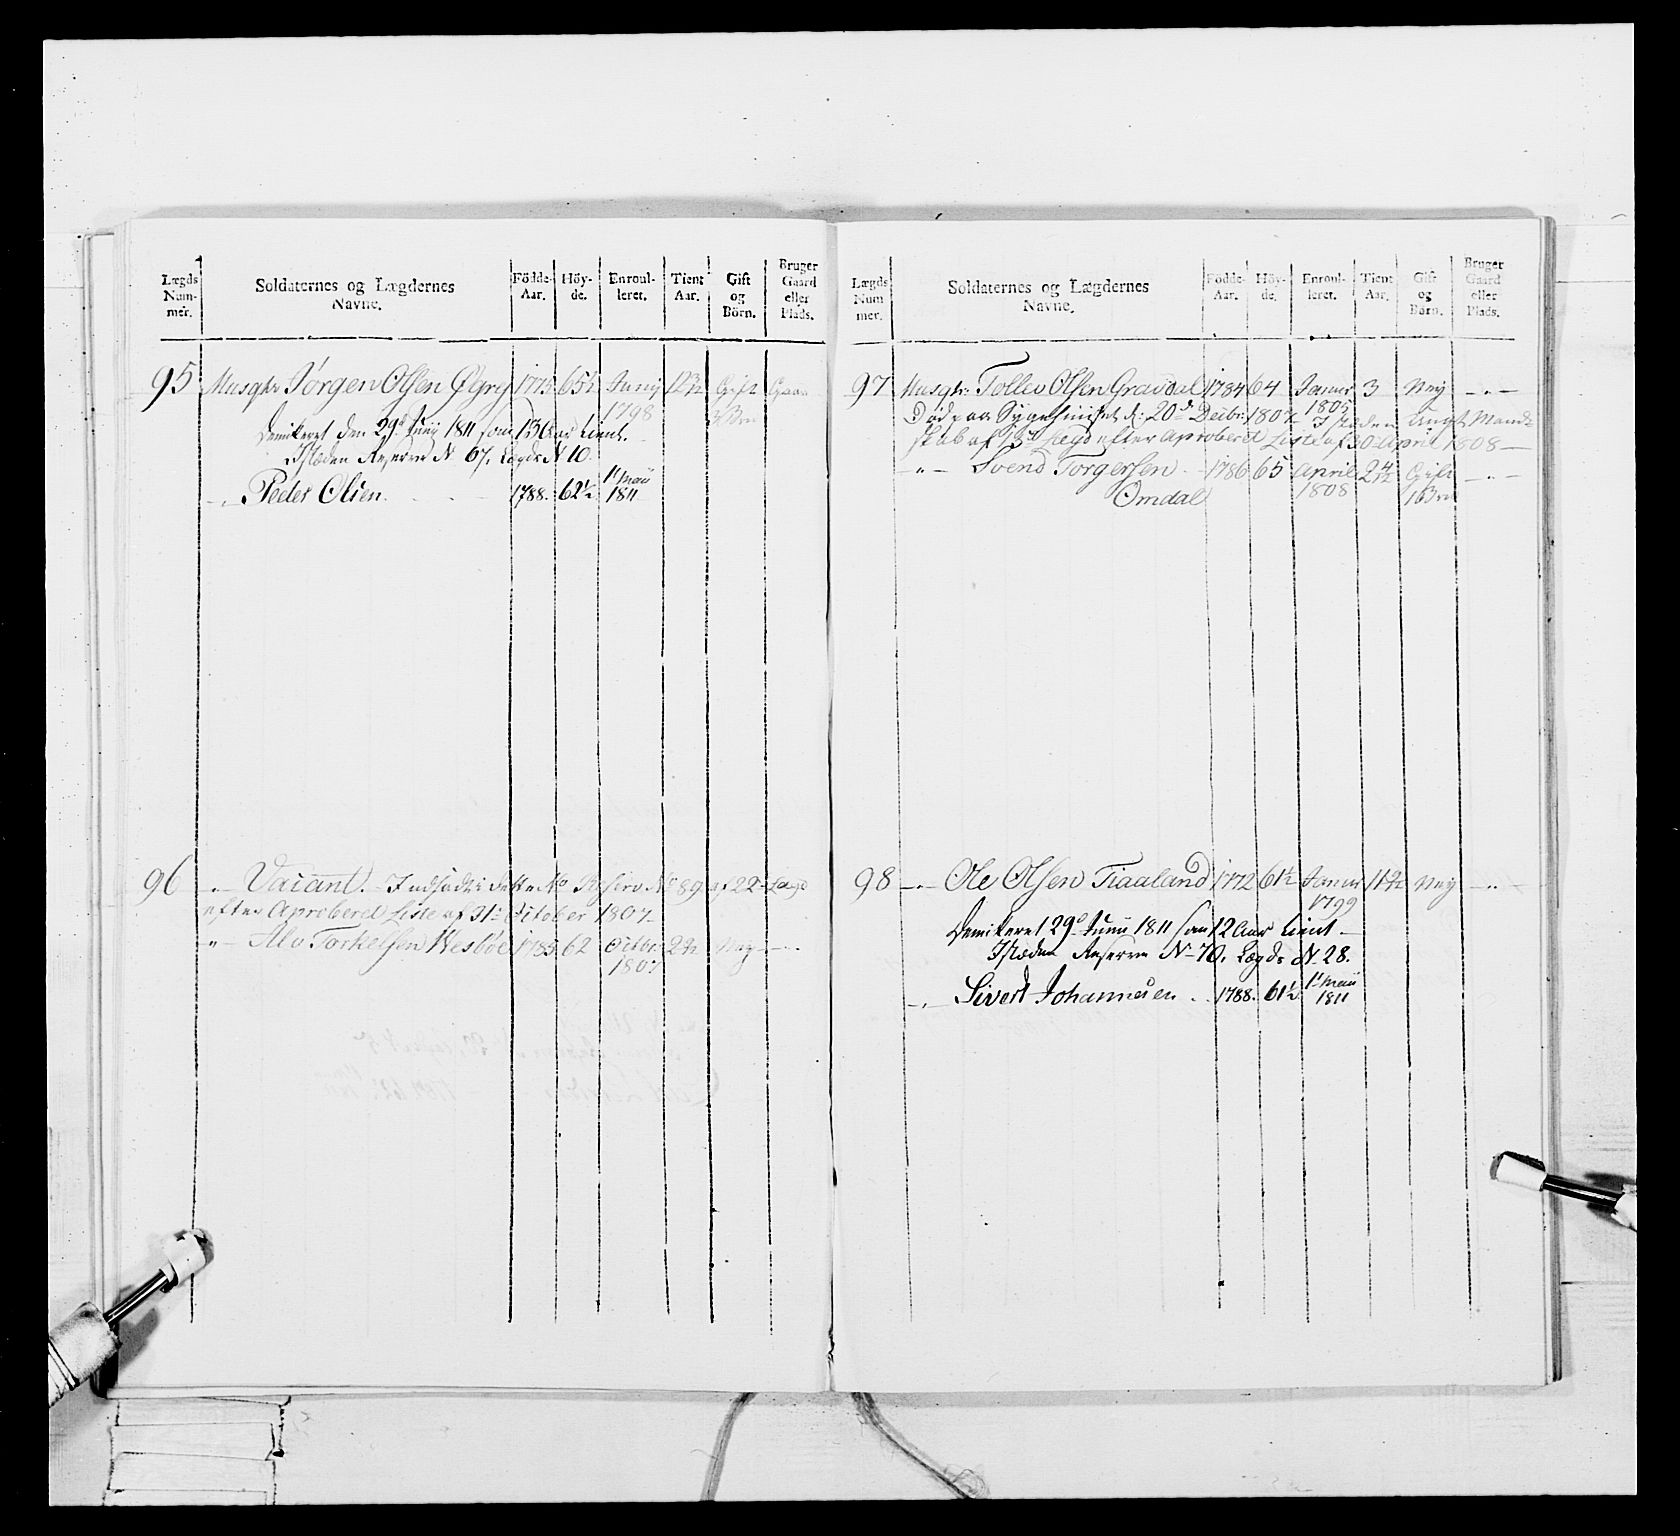 Lægds Num- mer. | Soldaternes og Lægdernes Navne. | Födde- Aar. | Höy- de. | Enroul- leret. | Tient Aar. | Gift og Börn. | Bruger Gaard eller Plads.
95 Musqtr Jørgen Olsen 1775 65½ Junÿ Gift
1798
Demiteret den 29d Junÿ 1811 som 13 Aar tient.
Istæden Reserve N 67. Lægds N 10.
-„- Peder Olsen. 1788. 62½ 1t Maii
1811
96 -„- Vacant. Indsadt i dette No Reserve No 89 af 22 Lægd
efter Aproberet Liste af 31. October 1807.
„- Alv Torkelsen Wesbøe 1785 62 Octbr Ney -„-
1807
Lægds Num mer. | Soldaternes og Lægdernes Navne. | Födde- Aar. | Höy- de. | Enroul- leret. | Tient Aar. | Gift og Börn. | Bruger Gaard eller Plads.
97 Musqtr. Tollev Olsen Gravdal 1784 64 Januar 3 Ney -„-
1805
Død paa Sygehuuset d: 20d Decbr: 1807. Istæden Ungt Mand-
skab af 13d Lægd efter Aproberet Liste af 30 April 1808 —
-„- Svend Torgersen 1786 65 April Gift -„-
Omdal 1808 1 Barn
98 -„- Ole Olsen Tiaaland 1772 61½ Januar Ney -„-
1799
Demiteret 29d Junii 1811 som 12 Aar tient -
Istæden Reserve No 70. Lægds N 28.
-„- Sivert Johannesen 1788. 61½ 1t Maii
1811